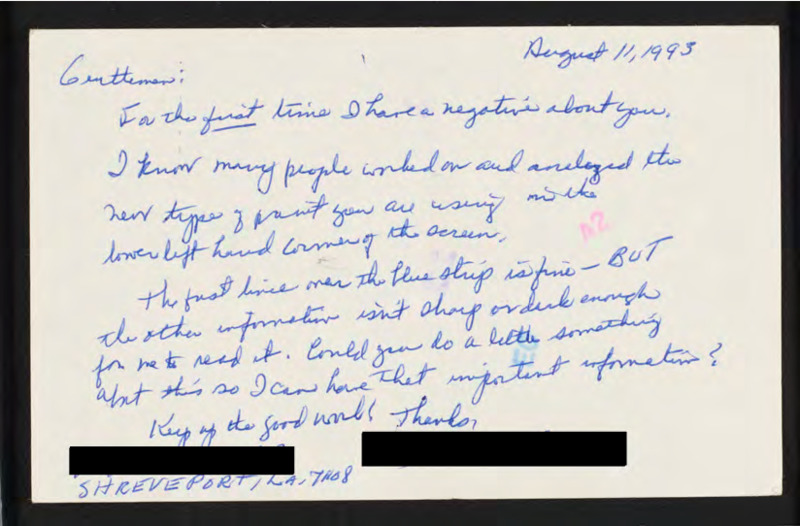 August 11, 1993
Gentlemen:
For the first time I have a negative about you.
I know many people worked on and analyzed the
new type of print you are using in the
lower left hand corner of the screen.
A2
The first line over the blue strip is fine — BUT
the other information isn't sharp or dark enough
for me to read it. Could you do a little something
abt this so I can have that important information?
Keep up the good work! Thanks,
SHREVEPORT, LA. 71108